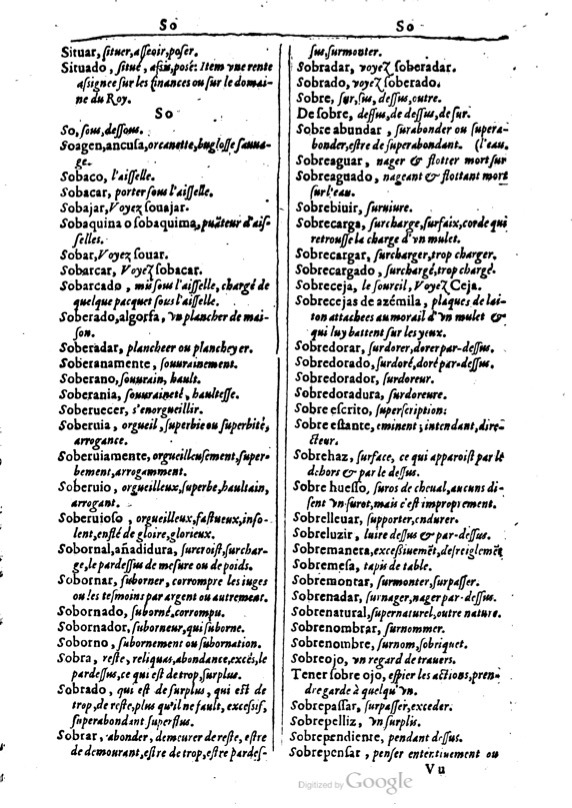 So
Situar, ſituer, aſſeoir, poſer.
Situado, ſitué, aſsis, posé: Item vne rente
aſsignee ſur les finances ou ſur le domai-
ne du Roy.
So
So, ſous, deſſous.
Soagen, ancuſa, orcanette, bugloſſe ſauua-
ge.
Sobaco, l'aiſſelle.
Sobacar, porter ſous l'aiſſelle.
Sobajar, Voyez ſouajar.
Sobaquina o ſobaquima, puäteur d'aiſ-
ſelles.
Sobar, Voyez ſouar.
Sobarcar, Voyez ſobacar.
Sobarcado, mis ſous l'aiſſelle, chargé de
quelque pacquet sous l'aiſſelle.
Soberado, algorfa, vn plancher de mai-
ſon.
Soberadar, plancheer ou plancheyer.
Soberanamente, ſouuerainement.
Soberano, ſouuerain, hault.
Soberania, ſouueraineté, haulteſſe.
Soberuecer, s'enorgueillir.
Soberuia, orgueil, ſuperbie ou ſuperbité,
arrogance.
Soberuiamente, orgueilleuſement, ſuper-
bement, arrogamment.
Soberuio, orgueilleux, ſuperbe, haultain,
arrogant.
Soberuioſo, orgueilleux, faſtueux, inſo-
lent, enflé de gloire, glorieux.
Sobornal, añadidura, ſurcroiſt, ſurchar-
ge, le pardeſſus de meſure ou de poids.
Sobornar, ſuborner, corrompre les iuges
ou les teſmoins par argent ou autrement.
Sobornado, suborné, corrompu.
Sobornador, ſuborneur, qui ſuborne.
Soborno, ſubornement ou ſubornation.
Sobra, reſte, reliquas, abondance, excés, le
pardeſſus, ce qui eſt de trop, ſurplus.
Sobrado, qui eſt de ſurplus, qui eſt de
trop, de reſte, plus qu'il ne fault, exceſsif,
ſuperabondant ſuperflus.
Sobrar, abonder, demeurer de reſte, eſtre
de demourant, eſtre de trop, eſtre pardeſ-
So
sus, ſurmonter.
Sobradar, voyez ſoberadar.
Sobrado, voyez ſoberado.
Sobre, ſur, ſus, deſſus, outre.
De ſobre, deſſus, de deſſus, de ſur.
Sobre abundar, ſurabonder ou ſupera-
bonder, eſtre de ſuperabondant. (l'eau.
Sobreaguar, nager & flotter mort ſur
Sobreaguado, nageant & flottant mort
ſur l'eau.
Sobrebiuir, ſuruiure.
Sobrecarga, ſurcharge, ſurfaix, corde qui
retrouſſe la charge d'vn mulet.
Sobrecargar, ſurcharger, trop charger.
Sobrecargado, ſurchargé, trop chargé.
Sobreceja, le ſourcil, Voyez Ceja.
Sobrecejas de azémila, plaques de lai-
ton attachees au morail d'vn mulet &
qui luy battent ſur les yeux.
Sobredorar, ſurdorer, dorer par-deſſus.
Sobredorado, ſurdoré, doré par-deſſus.
Sobredorador, ſurdoreur.
Sobredoradura, ſurdoreure.
Sobre eſcrito, ſuperſcription.
Sobre eſtante, eminent, intendant, dire-
cteur.
Sobrehaz, ſurface, ce qui apparoiſt par le
dehors & par le deſſus.
Sobre hueſſo, ſuros de cheual, aucuns di-
ſent vn ſurot, mais c'eſt impropremẽt.
Sobrelleuar, ſupporter, endurer.
Sobreluzir, luire deſſus & par-deſſus.
Sobremanera, exceſsiuemẽt, deſreiglemẽt
Sobremeſa, tapis de table.
Sobremontar, ſurmonter, ſurpaſſer.
Sobrenadar, ſurnager, nager par-deſſus.
Sobrenatural, ſupernaturel, outre nature.
Sobrenombrar, ſurnommer.
Sobrenombre, ſurnom, ſobriquet.
Sobreojo, vn regard de trauers.
Tener ſobre ojo, eſpier les actions, pren-
dre garde à quelqu'vn.
Sobrepaſſar, ſurpaſſer, exceder.
Sobrepelliz, vn ſurplis.
Sobrependiente, pendant deſſus.
Sobrepenſar, penſer ententiuement ou
Vu
Digitized by Google